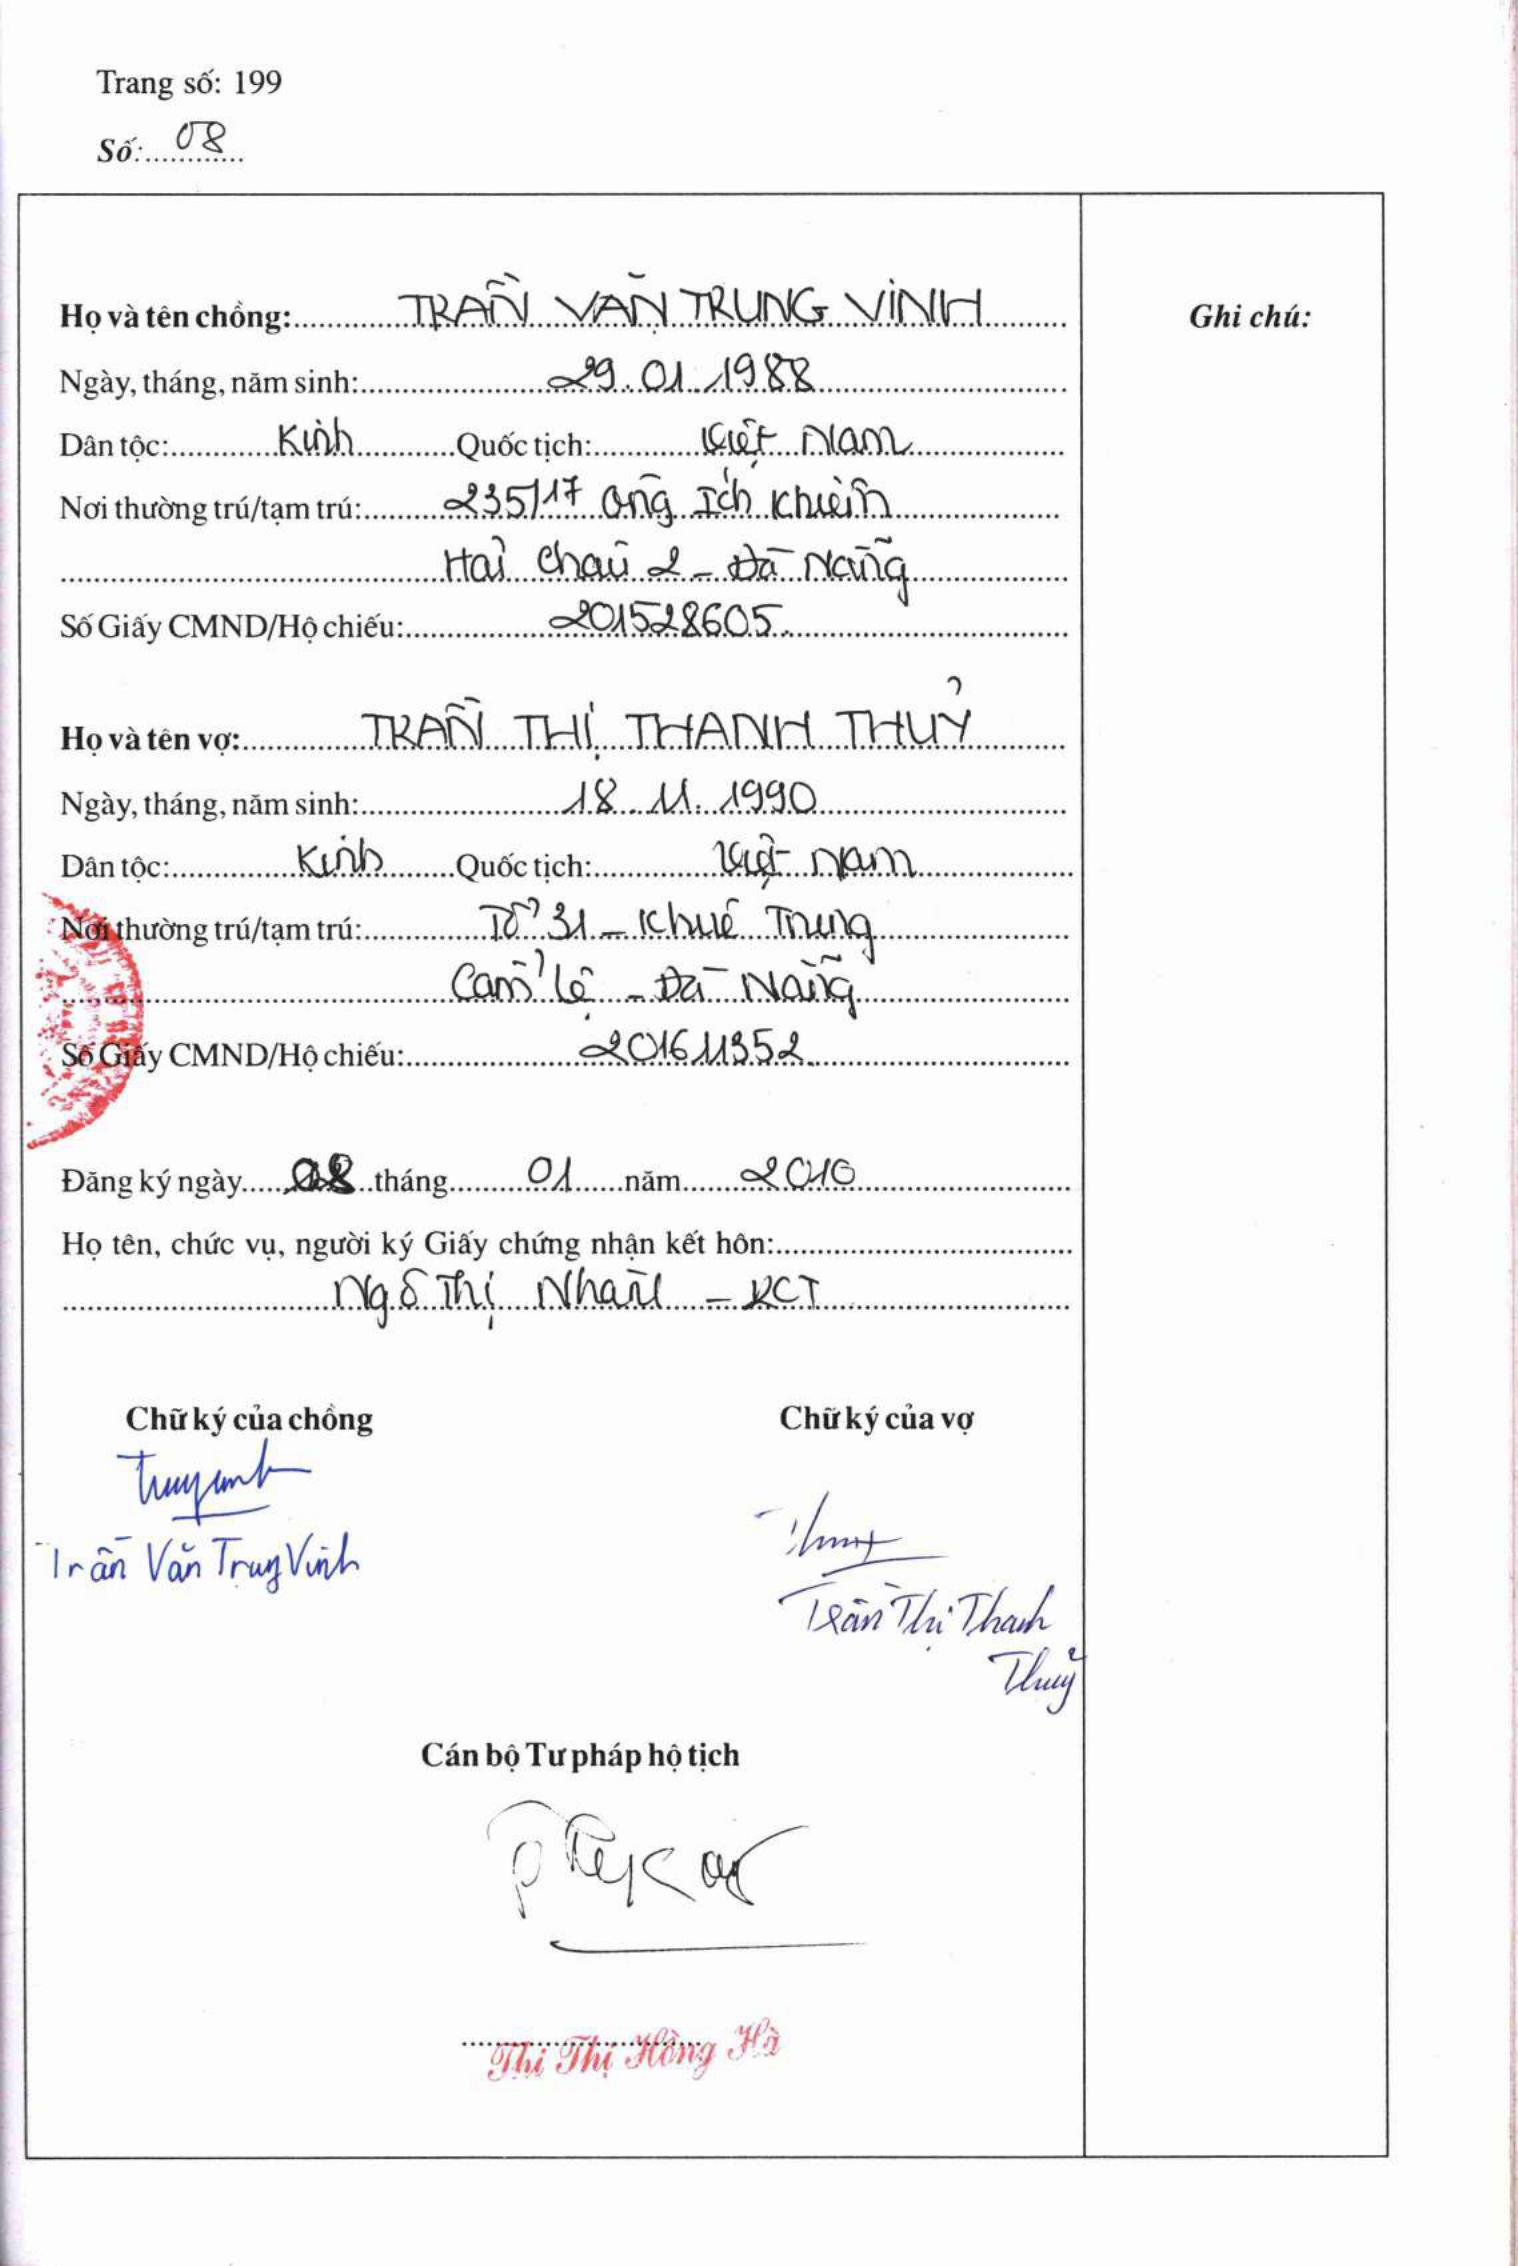 Trang số: 199
Số: 08
Họ và tên chồng: TRẦN VĂN TRUNG VINH
Ghi chú:
Ngày, tháng, năm sinh: 29.01.1988
Dân tộc: Kinh Quốc tịch: Việt Nam
Nơi thường trú/tạm trú: 235/17 Ông Ích Khiêm
Hải Châu 2 - Đà Nẵng
Số Giấy CMND/Hộ chiếu: 201528605
Họ và tên vợ: TRẦN THỊ THANH THUỶ
Ngày, tháng, năm sinh: 18.11.1990
Dân tộc: Kinh Quốc tịch: Việt Nam
Nơi thường trú/tạm trú: Tổ 31 - Khuê Trung
Cẩm Lệ - Đà Nẵng
Số Giấy CMND/Hộ chiếu: 201611352
Đăng ký ngày 08 tháng 01 năm 2010
Họ tên, chức vụ, người ký Giấy chứng nhận kết hôn:
Ngô Thị Nhàn - PCT
Chữ ký của chồng Chữ ký của vợ
Trần Văn Trung Vinh
Trần Thị Thanh
Thuỷ
Cán bộ Tư pháp hộ tịch
Thi Thị Hồng Hà